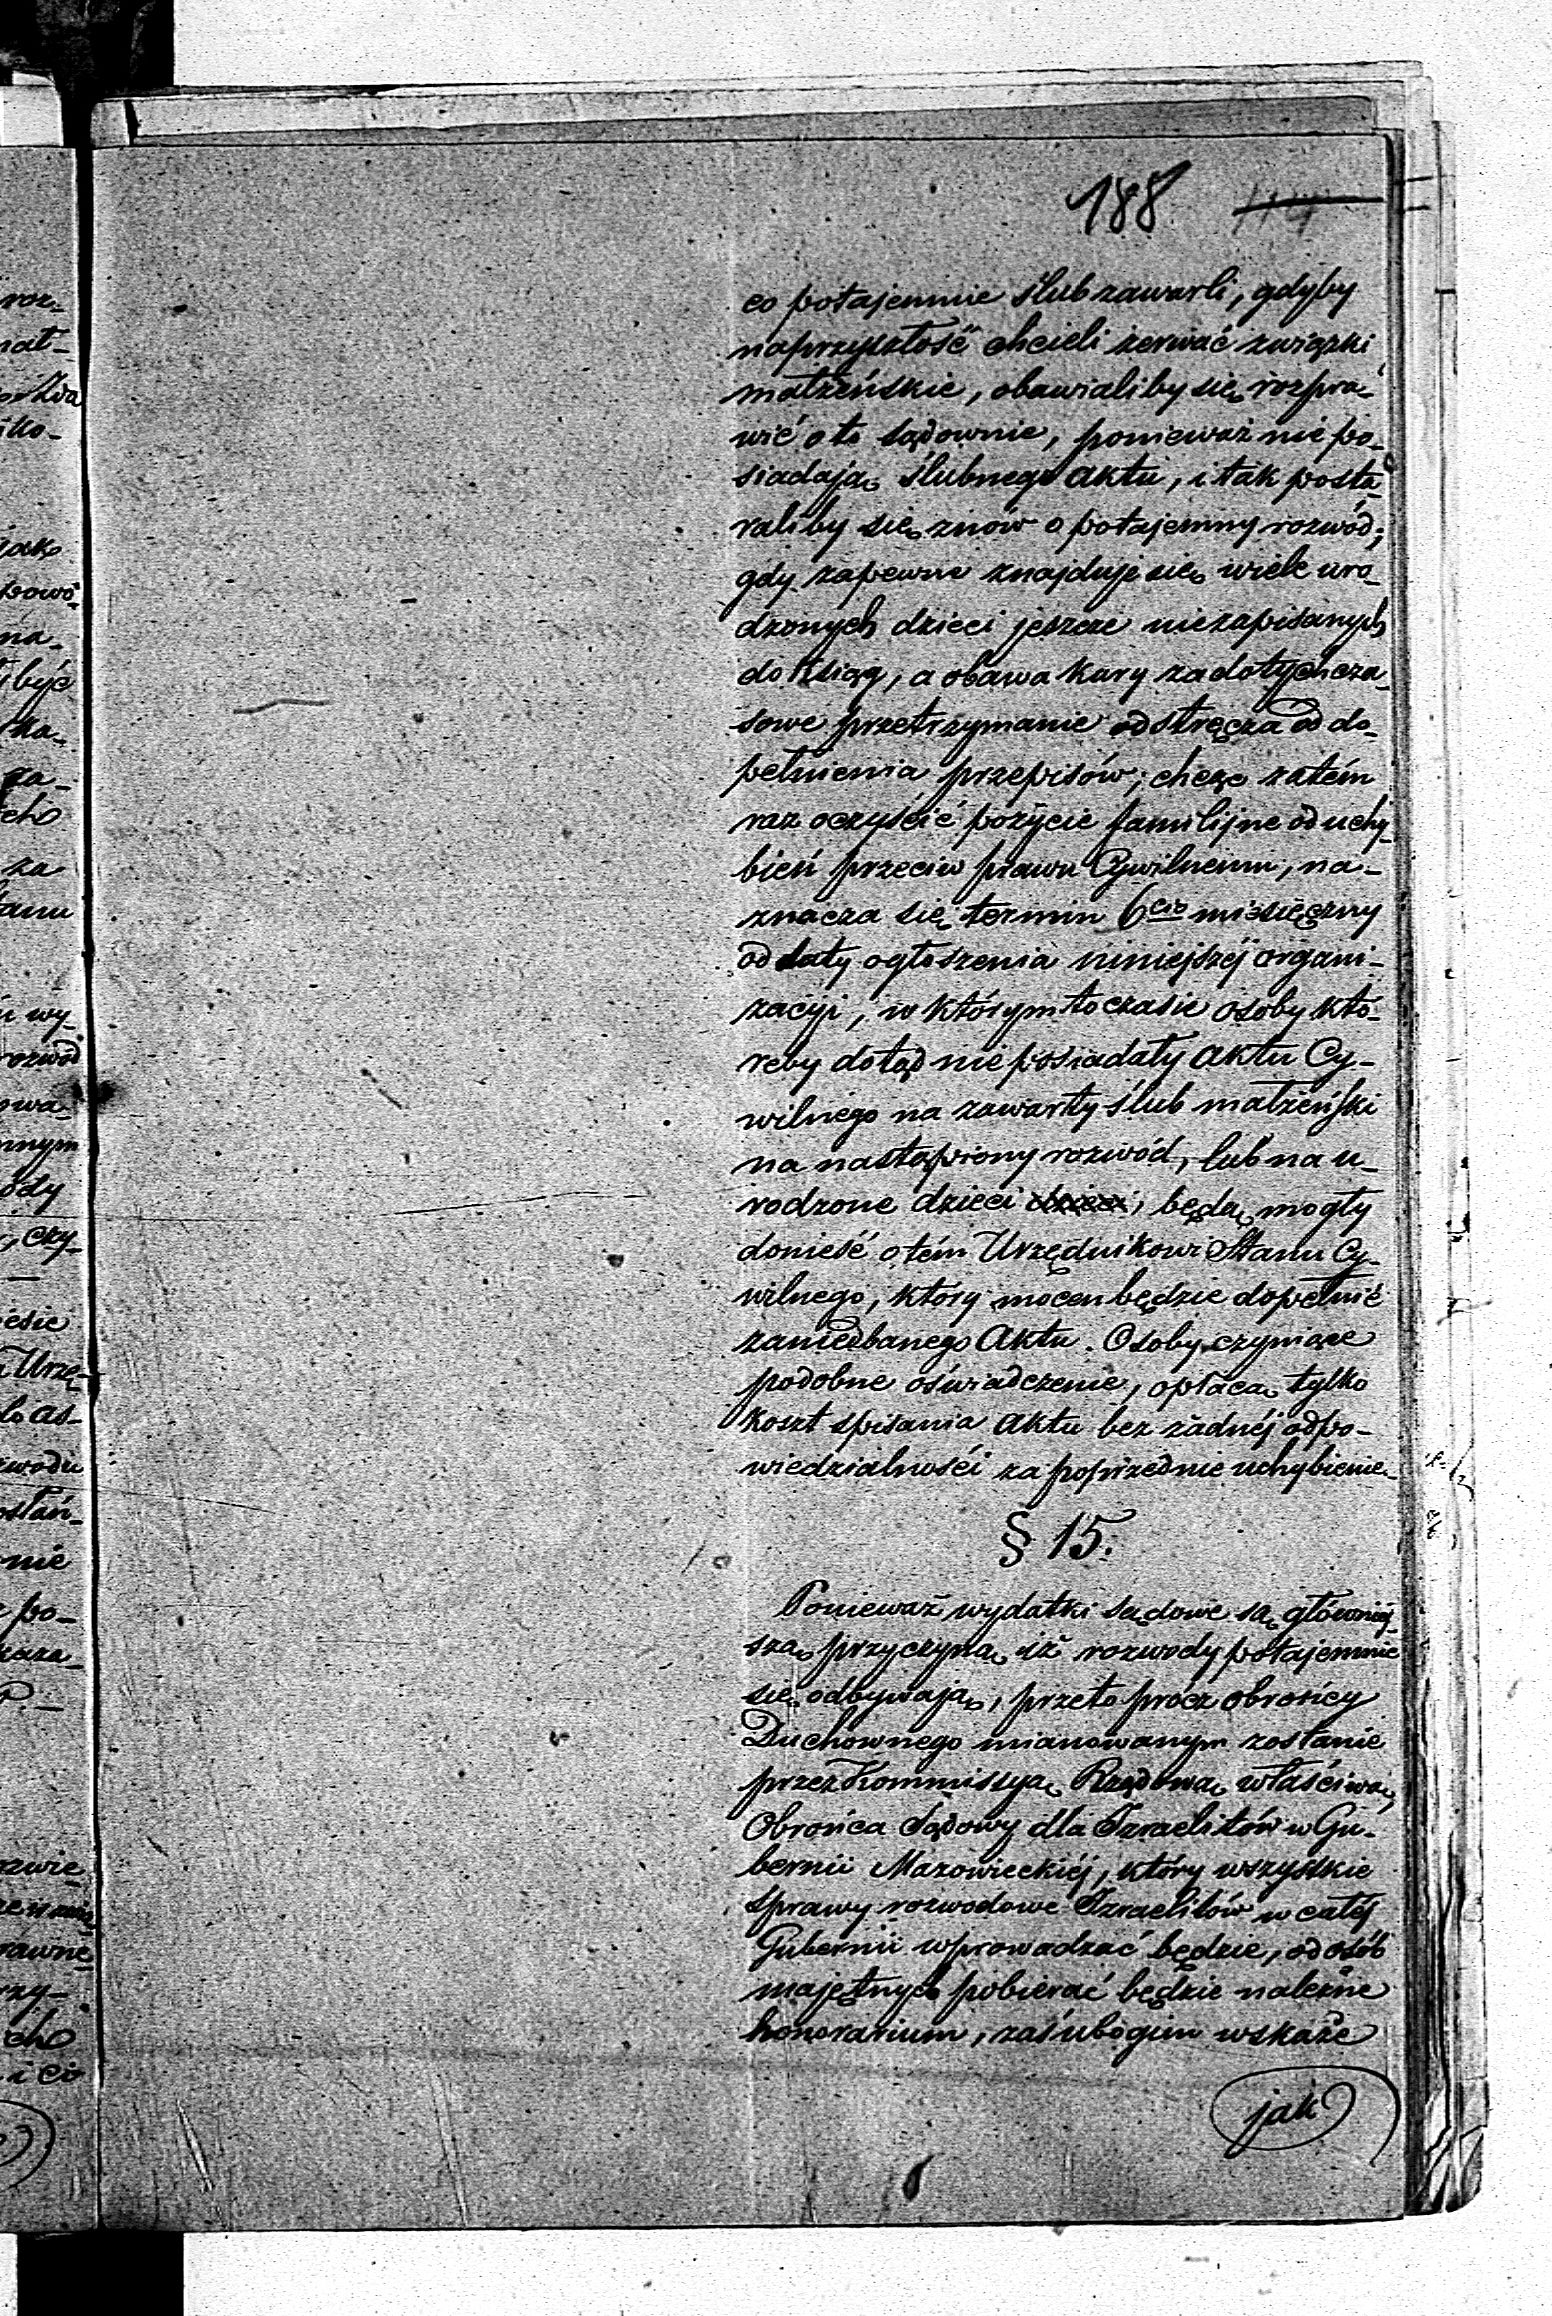 188
co potajemnie ślub zawarli, gdyby
naprzyszłość chcieli zerwać związki
małżeńskie, obawialiby się rozpra-
wić o to sądownie, ponieważ nie po-
siadają ślubnego aktu, i tak posta-
raliby się znów o potajemny rozwód;
gdy zapewne znajduje się wiele uro-
dzonych dzieci jeszcze niezapisanych
do Ksiąg, a obawa kary za dotychcza-
sowe przetrzymanie odstręcza od do-
pełnienia przepisów; chcąc zatém
raz oczyścić pożycie familijne od uchy-
bień przeciw prawu Cywilnemu, na-
znacza się termin 6cio miesięczny
od daty ogłoszenia niniejszéj organi-
zacyi, w którym to czasie osoby któ-
reby dotąd nie posiadały aktu Cy-
wilnego na zawarty ślub małżeński
na nastąpiony rozwód, lub na u-
rodzone dzieci dzieci, będą mogły
donieść o tém Urzędnikowi Stanu Cy-
wilnego, który mocen będzie dopełnić
zaniedbanego Aktu. Osoby czyniące
podobne oświadczenie, opłacą tylko
koszt spisania aktu bez żadnéj odpo-
wiedzialności za poprzednie uchybienie.
§ 15.
Ponieważ wydatki sądowe są główniej-
szą przyczyną iż rozwody potajemnie
się odbywają, przeto prócz obrońcy
Duchownego mianowanym zostanie
przez Kommissyą Rządową właściwą,
Obrońca Sądowy dla Izraelitów w Gu-
bernii Mazowieckiéj, który wszystkie
sprawy rozwodowe Izraelitów w całéj
Gubernii wprowadzać będzie, od osób
majętnych pobierać będzie należne
honorarium, zaś ubogim wskaże
jak